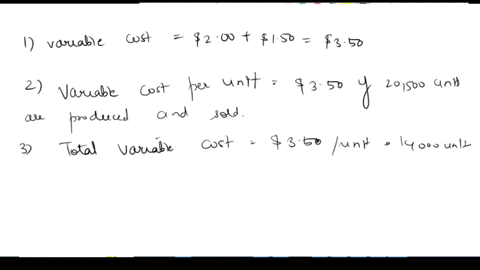 1) variable cost = $2.00 + $1.50 = $3.50
2) Variable cost per unit = $3.50 if 20,500 unit
are produced and sold.
3) Total variable cost = $3.50 /unit * 14000 units